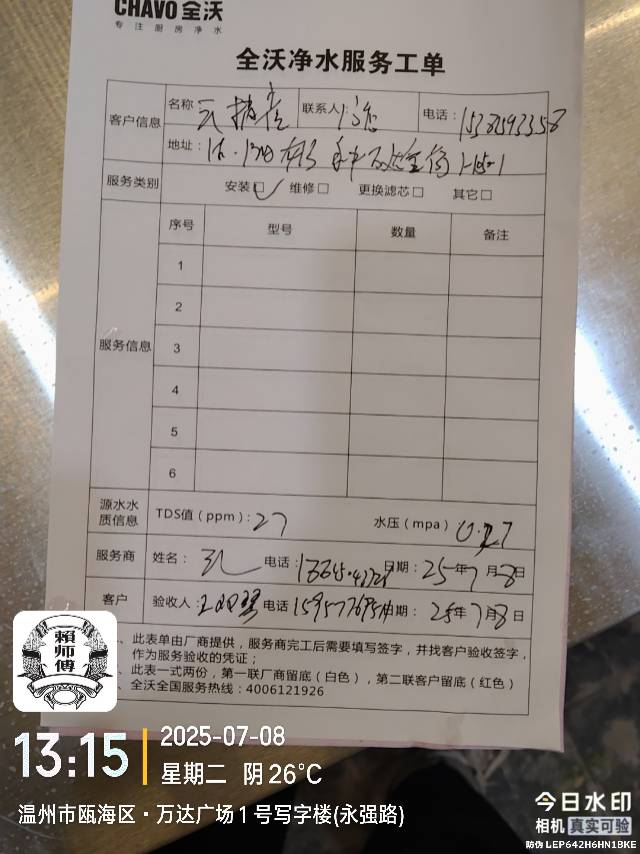 CHAVO 全沃
专注厨房净水
全沃净水服务工单
客户信息 名称 联系人 电话：
地址：
服务类别 安装 维修 更换滤芯 其它
服务信息 序号 型号 数量 备注
1
2
3
4
5
6
源水水质信息 TDS值（ppm）：27 水压（mpa）0.27
服务商 姓名： 电话： 日期：25年7月8日
客户 验收人： 电话 日期：25年7月8日
、此表单由厂商提供，服务商完工后需要填写签字，并找客户验收签字，
作为服务验收的凭证；
、此表一式两份，第一联厂商留底（白色），第二联客户留底（红色）
、全沃全国服务热线：4006121926
賴師傅
13:15 2025-07-08
星期二 阴 26℃
温州市瓯海区·万达广场1号写字楼(永强路)
今日水印
相机 真实可验
防伪 LEP642H6HN1BKE